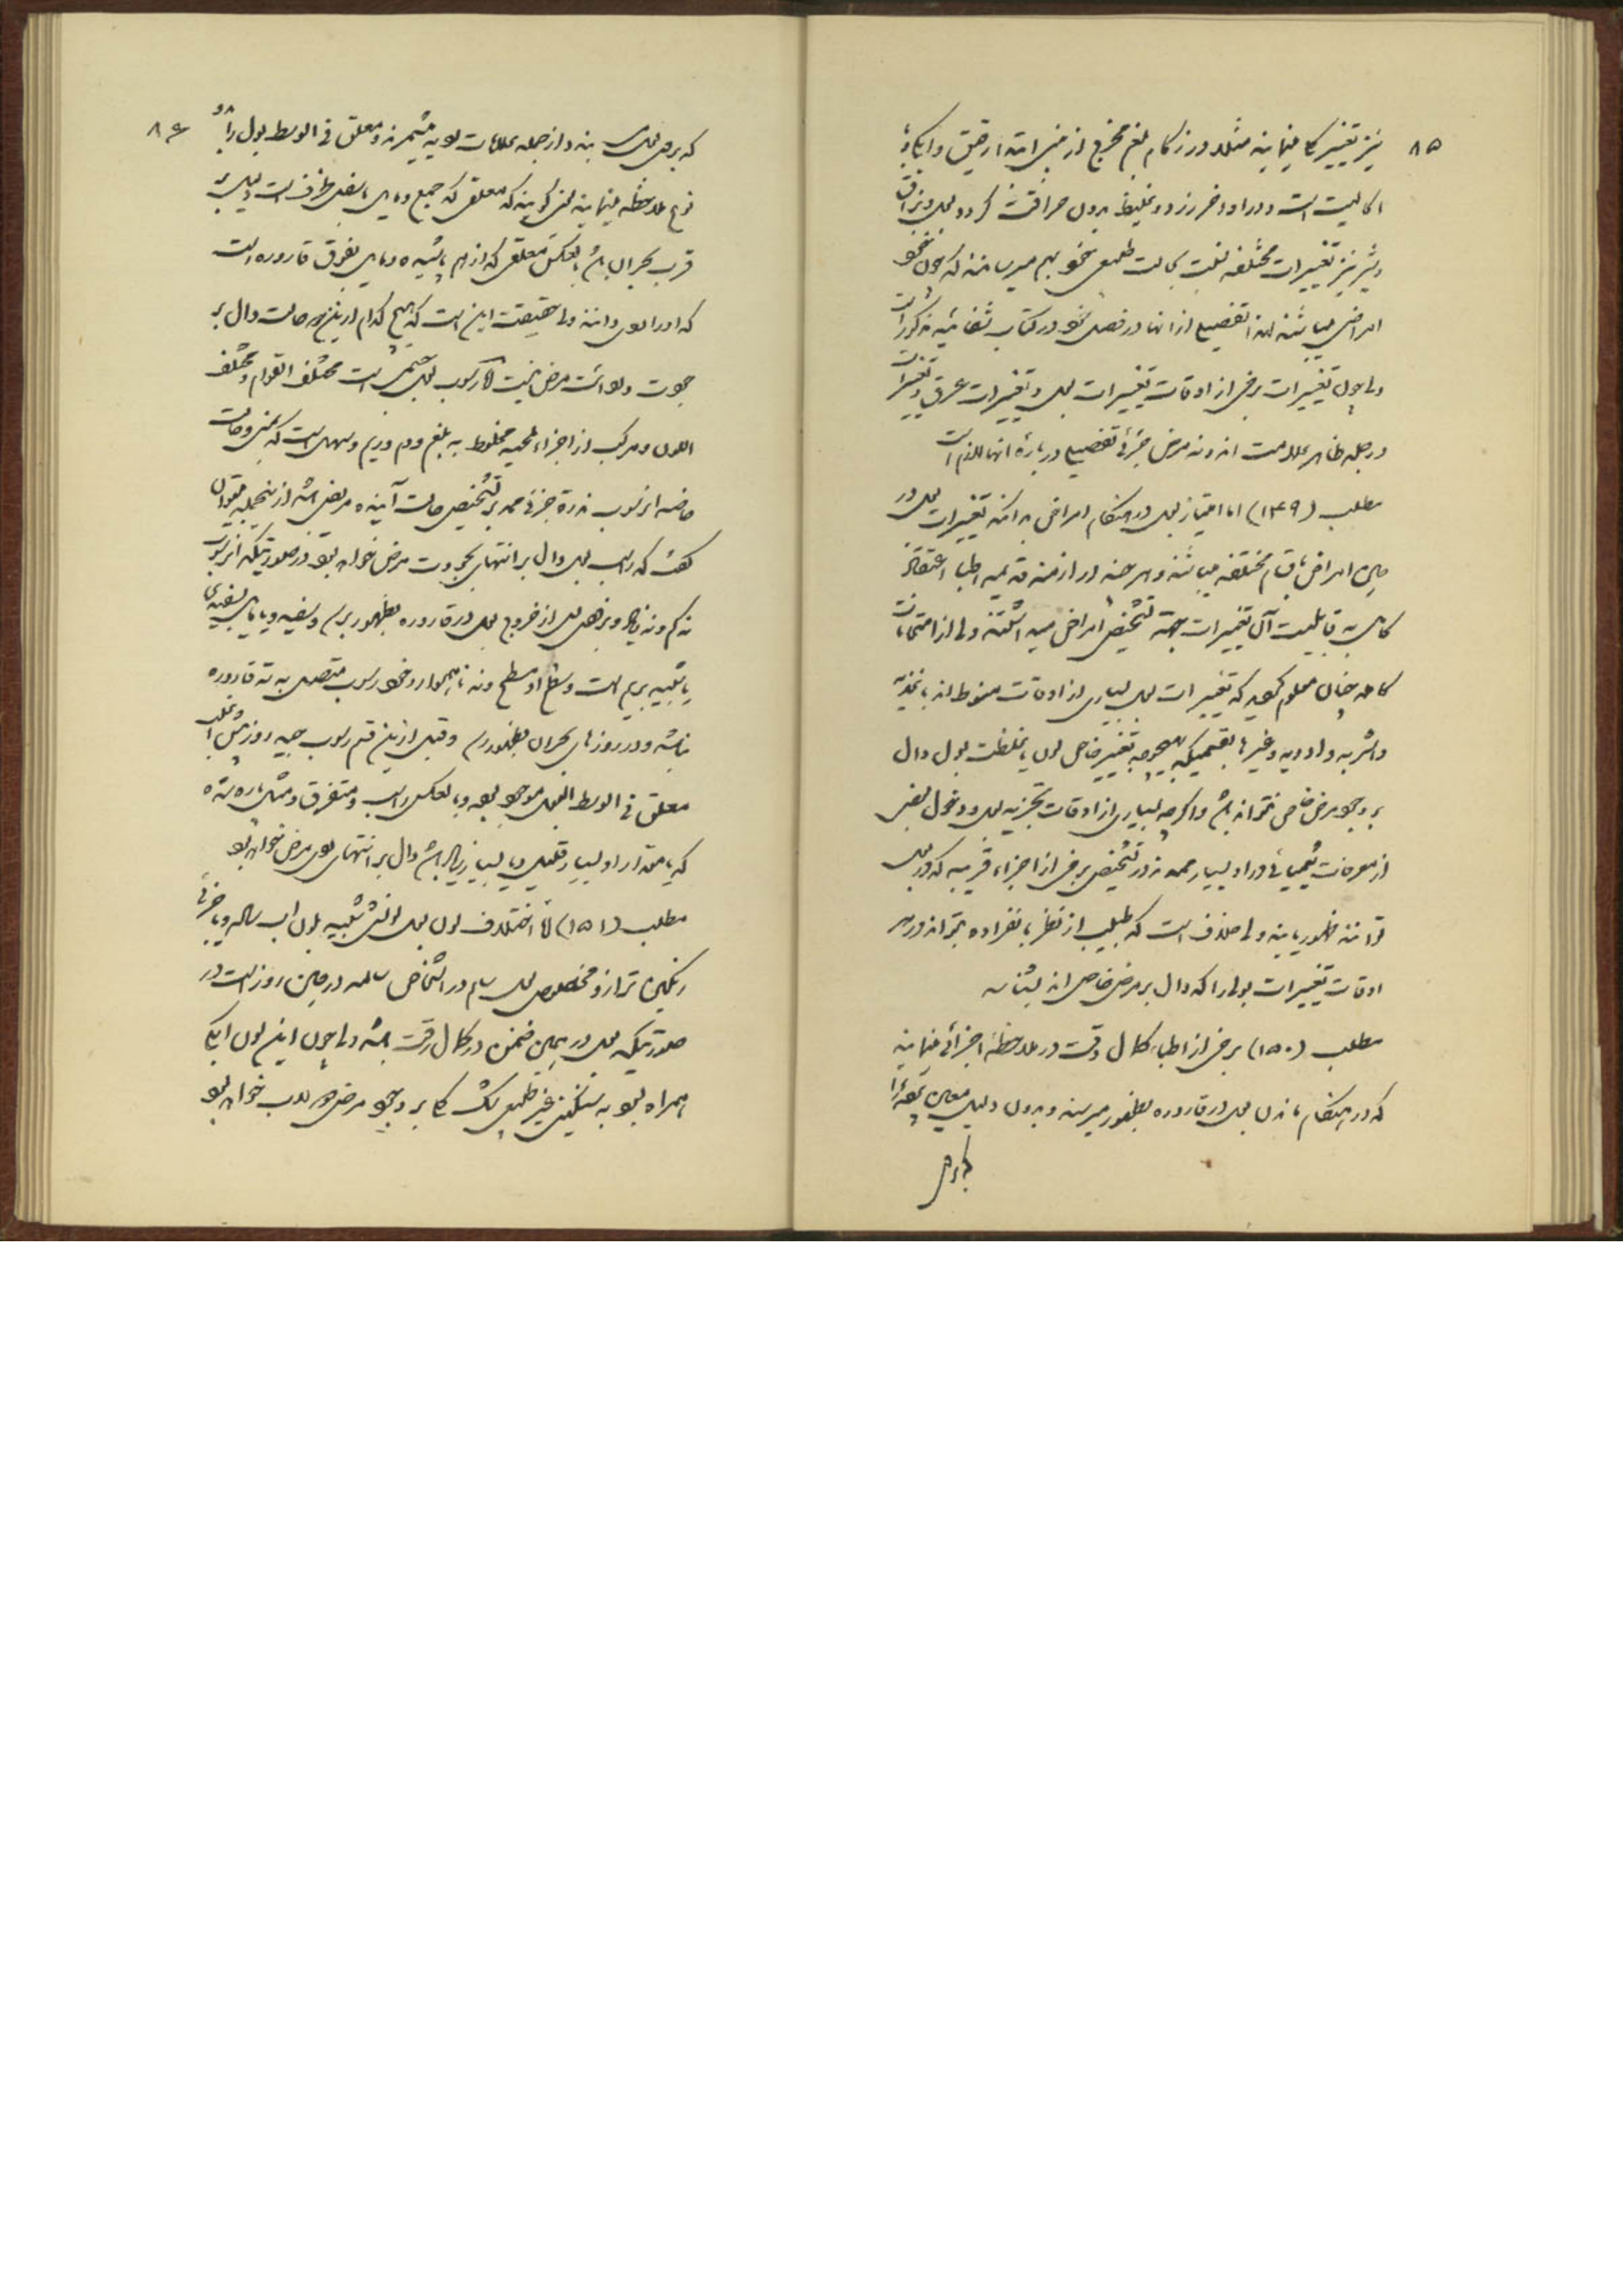 ۸۵
نیز تغییر کلی مینمایند مثلا در زکام بلغم مخرج از بینی ابتدا رقیق و
اکالیت است و در اواخر زرد و غلیظ بدون حرافت گردد بول و بزاق
و شیر نیز تغییرات مختلفه نسبت بحالت طبیعی خود بهم میرسانند که چون خود
امراض میباشند لهذا تفصیل از آنها در فصل خود در کتاب شفائیه مذکور است
ولی چون تغییرات برخی از اوقات تغییرات بول و تغییرات عرق و تغییرات
در جمله ظاهر علامت اند و نه مرض جزئی تفصیل درباره آنها لازم است
مطلب (۱۴۹) اما امتیاز بول در هنگام امراض بدانکه تغییرات بول در
حین امراض باقسام مختلفه میباشند و هر چند در ازمنه قدیمه اطبا اعتقاد
کامل به قابلیت آن تغییرات جهة تشخیص امراض میداشتند ولی از امتحانات
کامله چنان معلوم گردید که تغییرات بول بسیاری از اوقات منوط اند باغذیه
و اشربه و ادویه و غیرها بقسمیکه بهیچوجه تغییر خاص لون یا غلظت بول دال
بر وجود مرض خاصی نتواند شد و اگرچه بسیاری از اوقات تجزیه بول و دخول بعضی
از معرفات شیمیائی در او بسیار ممد اند در تشخیص برخی از اجزاء غریبه که در بول
توانند ظهور یابند ولی خلاف است که طبیب از نظر بانفراده بتواند در هر
اوقات تغییرات بول را که دال بر مرض خاصی اند بشناسد
مطلب (۱۵۰) برخی از اطباء کمال دقت در ملاحظه اجزائی مینمایند
که در هنگام ماندن بول در قاروره بظهور میرسند و بدون دلیل معین
۸۶
که بر روی بول بیند و از جمله علامات بد میشمرند و معلق فی الوسط بول را
نوع ملاحظه مینمایند یعنی گویند که معلقی که جمیع و مایل باسفل ظرف است دلیل بر
قرب بحران باشد بالعکس معلقی که از هم پاشیده و مایل بفوق قاروره است
که او را بد دانند ولی حقیقت این است که هیچ کدام از این دو حالت دال بر
جودت و بدائت مرض نیست اما رسوب بول جسمی است مختلف القوام و مختلف
اللون و مرکب از اجزاء لحمیه مخلوط به بلغم و دم و ریم و سهل است که
خاصه این رسوب ندرة جزئی ممد بر تشخیص حالت آینده مریض باشد از اینجمله میتوان
گفت که راسب بول دال بر انتهای بجودت مرض خواهد بود در صورتیکه این رسوب
نه کم و نه زیاد و بزودی پس از خروج بول در قاروره بظهور برسد و سفید و یا مایل بسفیدی
یا شبیه بریم است و سطح او مسطح و نه ناهموار و خود رسوب متصل به ته قاروره
باشد و در روزهای بحران بظهور رسد و قبل از این قسم رسوب چند روز پیش
معلق فی الوسط البول موجود بود و بالعکس راسب و متفرق و مثل پاره شده
که یا مقدار او بسیار قلیل و یا بسیار زیاد باشد دال بر انتهای بد مرض خواهد بود
مطلب (۱۵۱) اما اختلاف لون بول لونش شبیه بلون آب ساده و یا جزئی
رنگین تر از و مخصوص بول سالم در اشخاص سالمه در حین روز است در
صورتیکه بول در همین ضمن در کمال رقت باشد ولی چون این لون
همراه بود به سنگینی غیر طبیعی بیشک دال بر وجود مرض خواهد بود